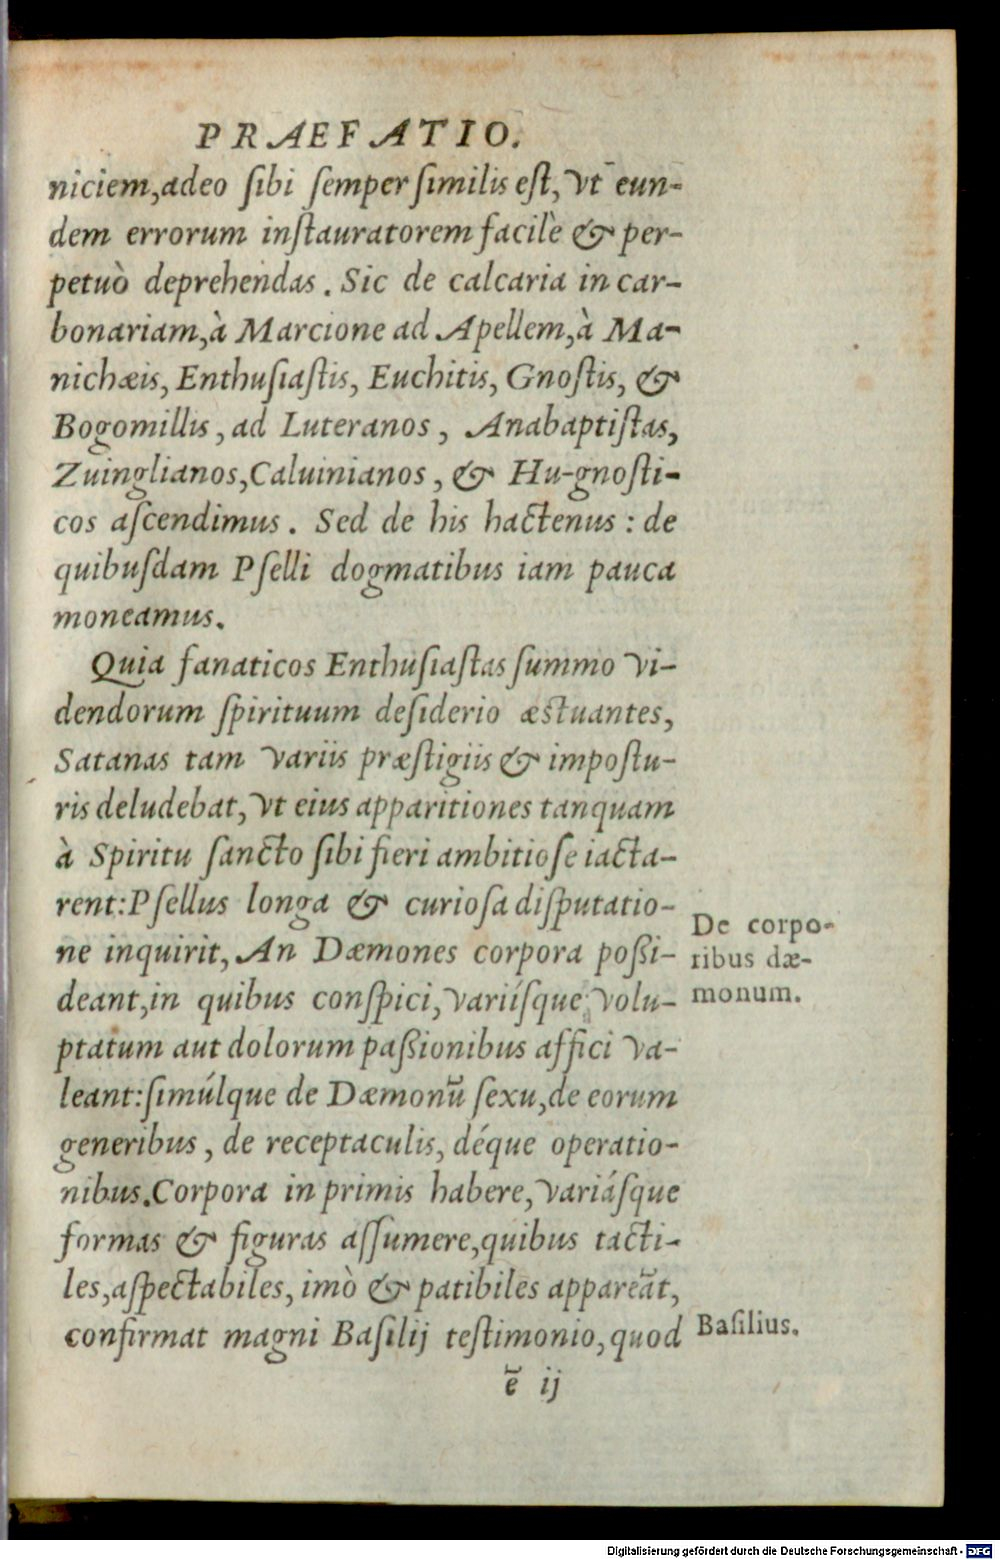 PRAEFATIO.
niciem, adeo ſibi ſemper ſimilis eſt, vt eun-
dem errorum inſtauratorem facilè & per-
petuò deprehendas. Sic de calcaria in car-
bonariam, à Marcione ad Apellem, à Ma-
nichæis, Enthuſiaſtis, Euchitis, Gnoſtis, &
Bogomillis, ad Luteranos, Anabaptiſtas,
Zuinglianos, Caluinianos, & Hu-gnoſti-
cos aſcendimus. Sed de his hactenus: de
quibuſdam Pſelli dogmatibus iam pauca
moneamus.
Quia fanaticos Enthuſiaſtas ſummo vi-
dendorum ſpirituum deſiderio æstuantes,
Satanas tam variis præſtigiis & impoſtu-
ris deludebat, vt eius apparitiones tanquam
à Spiritu ſancto ſibi fieri ambitioſe iacta-
rent: Pſellus longa & curioſa diſputatio-
ne inquirit, An Dæmones corpora poßi-
deant, in quibus conſpici, variíſque volu-
ptatum aut dolorum paßionibus affici va-
leant: ſimúlque de Dæmonũ ſexu, de eorum
generibus, de receptaculis, déque operatio-
nibus. Corpora in primis habere, variáſque
formas & figuras aſſumere, quibus tacti-
les, aſpectabiles, imò & patibiles appareãt,
confirmat magni Baſilij teſtimonio, quod
ẽ ij
De corpo-
ribus dæ-
monum.
Baſilius.
Digitalisierung gefördert durch die Deutsche Forschungsgemeinschaft - DFG